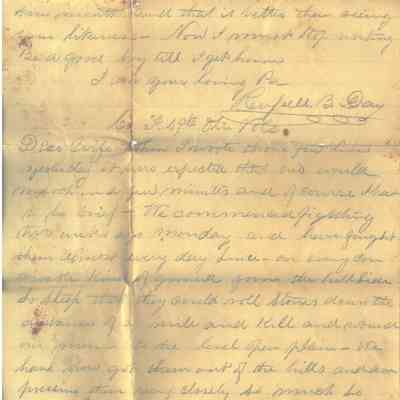 and that it better than seeing
your likeness - Now I must stop writing
Be a good boy till I get home
I am your loving Pa
B. Day
Co F. 49th Ohio Vols.
Dear Wife When I wrote those few lines
yesterday it was expected that we would
march in a few minutes and of course had
to be brief - We commenced fighting
two weeks ago Monday and have fought
them almost every day since - on every
kind of ground some the hill sides
so steep that they could roll stones down the
distance of a mile and kill and wound
our men to the level open plain - We
have now got them out of the hills and are
pressing them very closely so much so